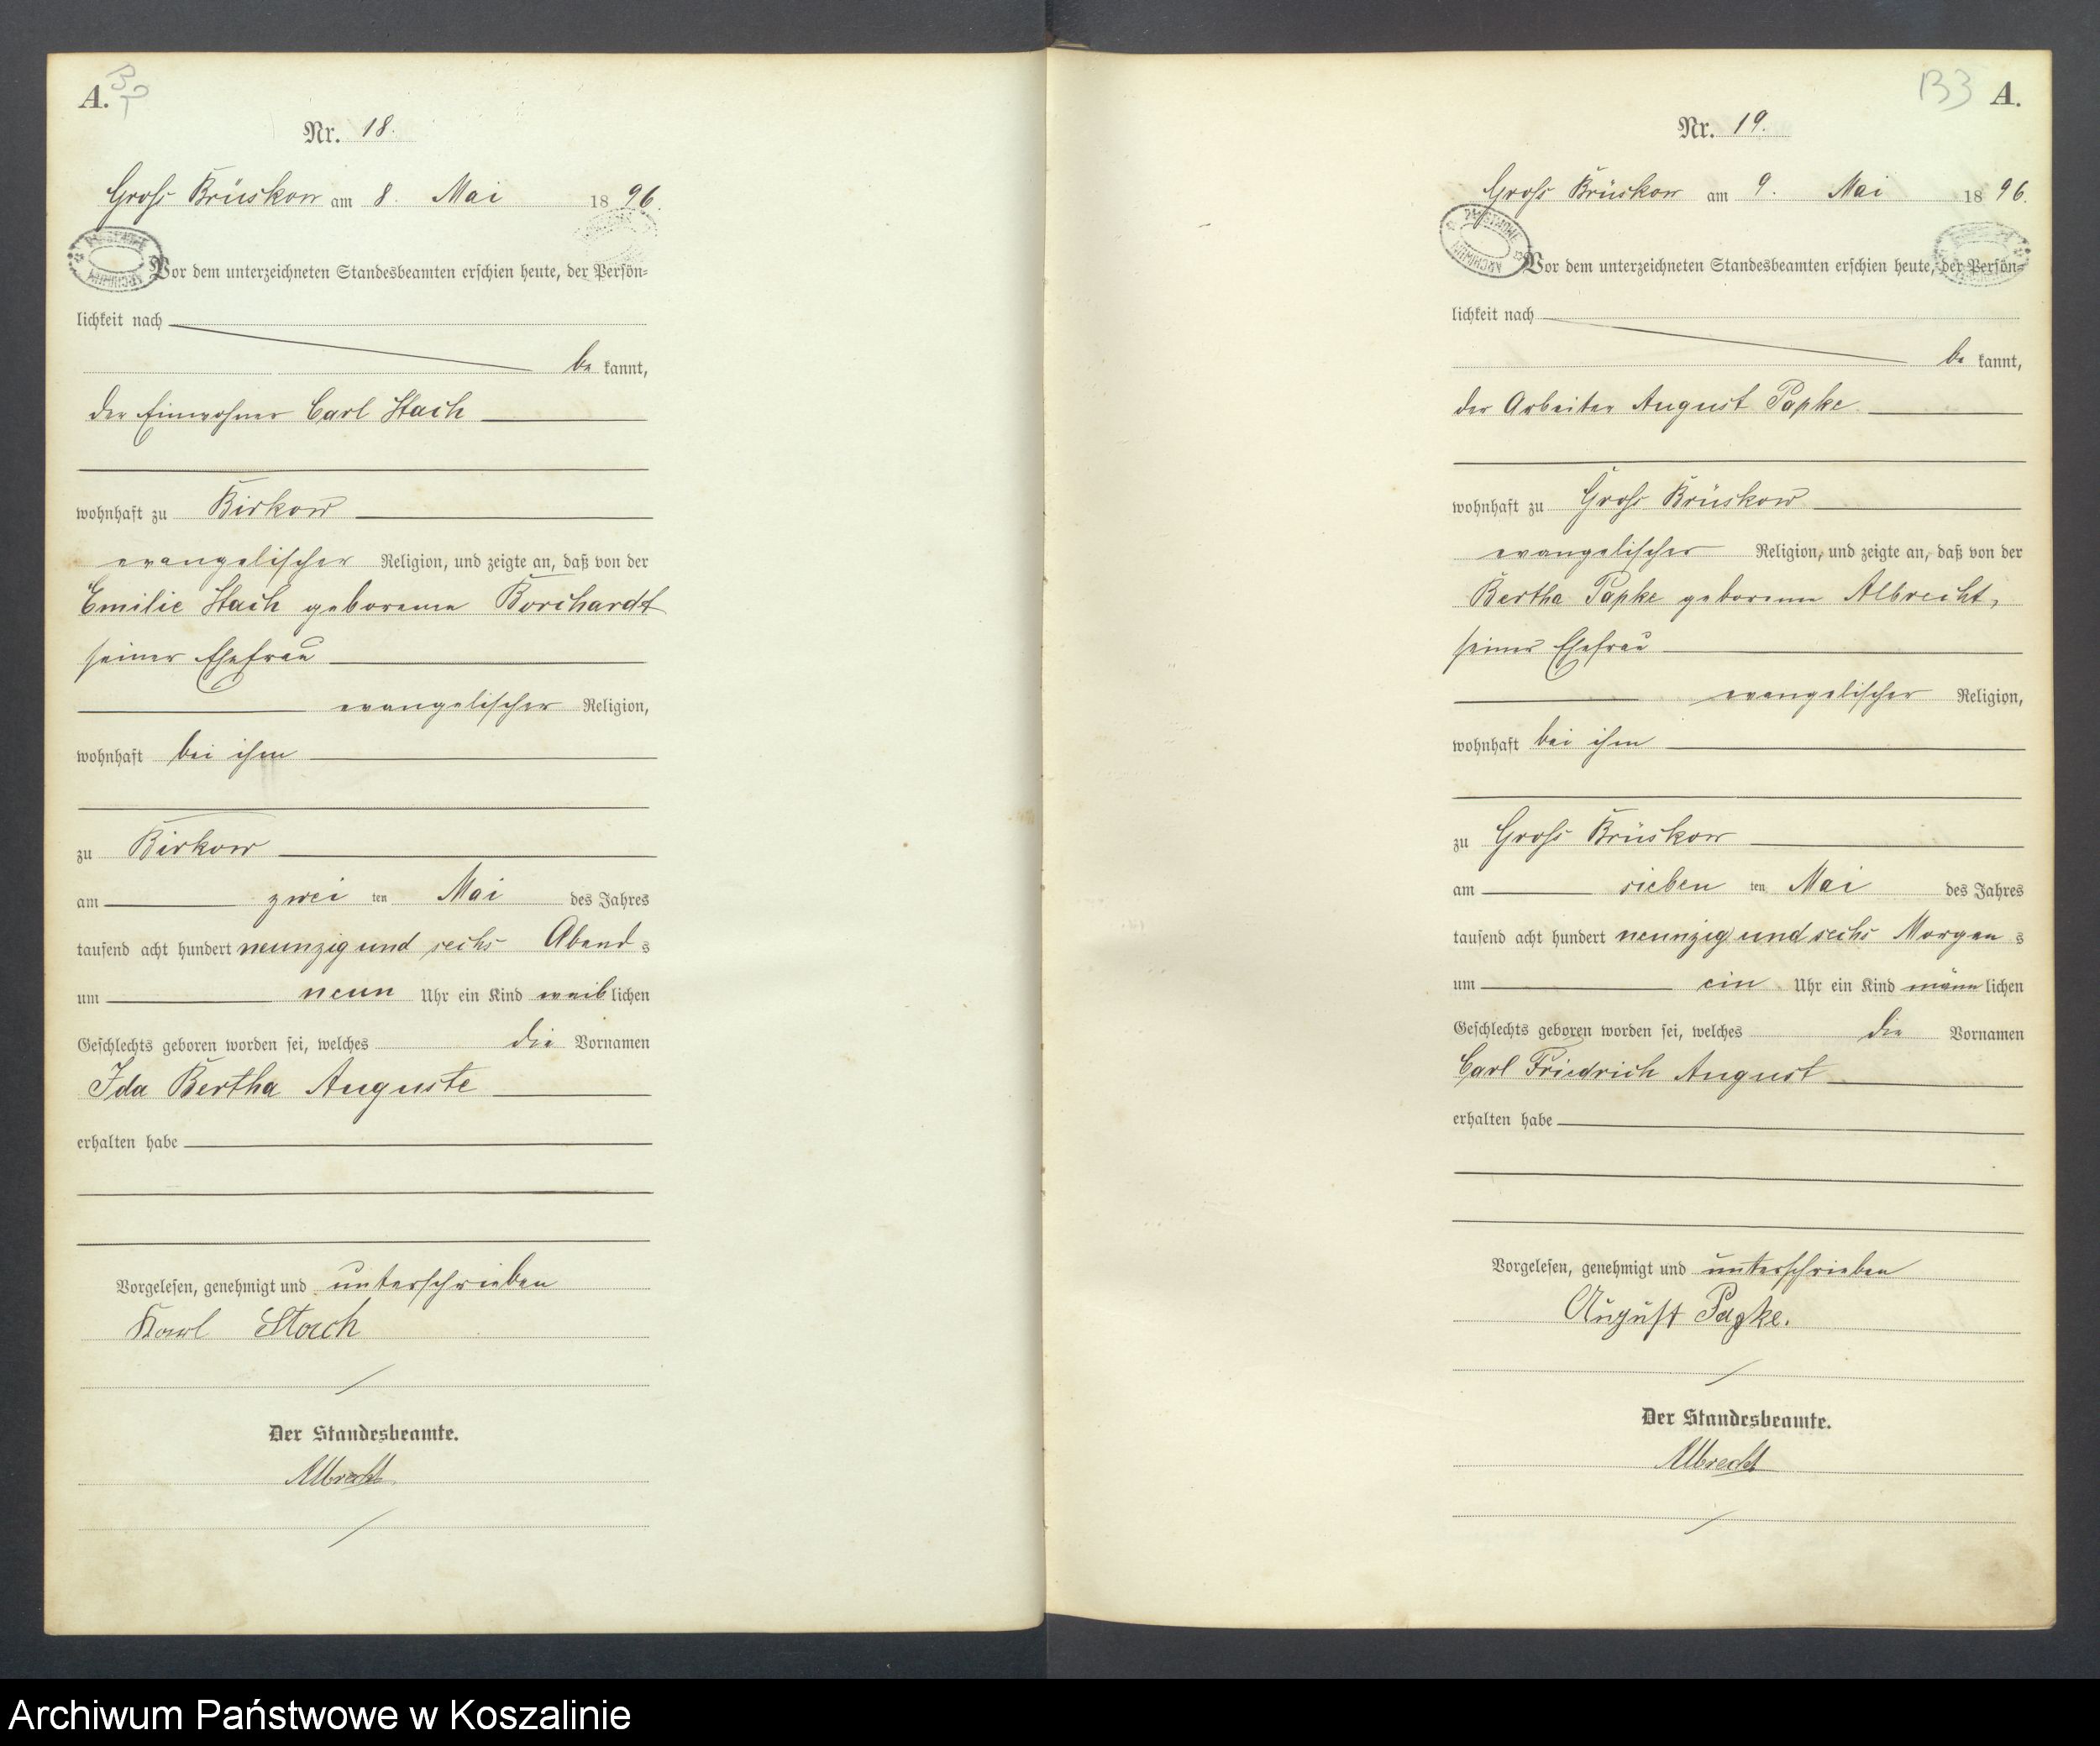 A.
Nr. 18.
Groß Brüskow am 8. Mai 1896.
Vor dem unterzeichneten Standesbeamten erschien heute, der Persön-
lichkeit nach
be kannt,
der Einwohner Carl Stach
wohnhaft zu Birkow
evangelischer Religion, und zeigte an, daß von der
Emilie Stach geborene Borchardt
seiner Ehefrau
evangelischer Religion,
wohnhaft bei ihm
zu Birkow
am zwei ten Mai des Jahres
tausend acht hundert neunzig und sechs Abend s
um neun Uhr ein Kind weib lichen
Geschlechts geboren worden sei, welches die Vornamen
Ida Bertha Auguste
erhalten habe
Vorgelesen, genehmigt und unterschrieben
Karl Stach
Der Standesbeamte.
Albrecht
133 A.
Nr. 19.
Groß Brüskow am 9. Mai 1896.
Vor dem unterzeichneten Standesbeamten erschien heute, der Persön-
lichkeit nach
be kannt,
der Arbeiter August Papke
wohnhaft zu Groß Brüskow
evangelischer Religion, und zeigte an, daß von der
Bertha Papke geborene Albrecht,
seiner Ehefrau
evangelischer Religion,
wohnhaft bei ihm
zu Groß Brüskow
am sieben ten Mai des Jahres
tausend acht hundert neunzig und sechs Morgen s
um ein Uhr ein Kind männ lichen
Geschlechts geboren worden sei, welches die Vornamen
Carl Friedrich August
erhalten habe
Vorgelesen, genehmigt und unterschrieben
August Papke.
Der Standesbeamte.
Albrecht
Archiwum Państwowe w Koszalinie